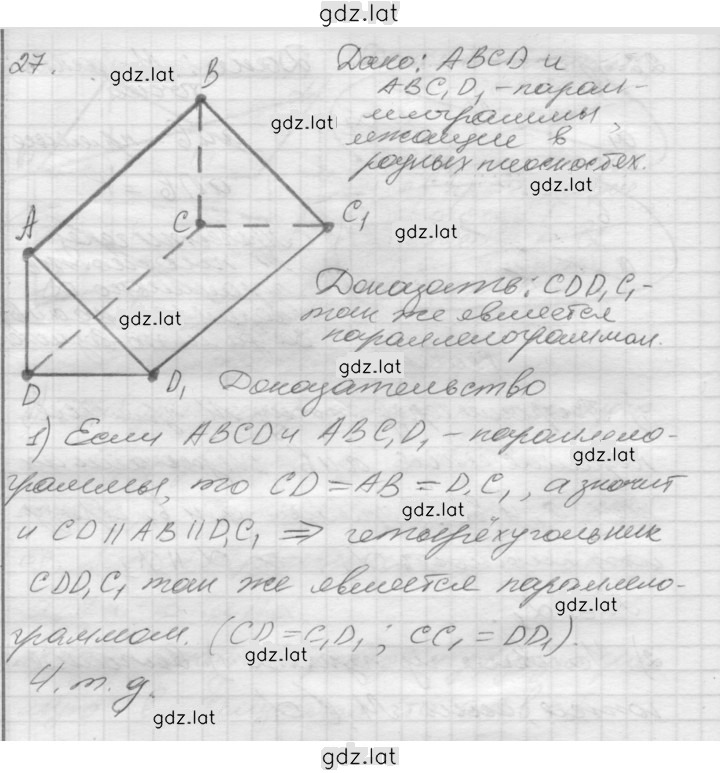 gdz.lat
27.
gdz.lat
B
Дано: ABCD и
ABC₁D₁ - парал-
лелограммы,
лежащие в
разных плоскостях.
gdz.lat
gdz.lat
A
C
C₁
gdz.lat
gdz.lat
Доказать: CDD₁C₁ -
так же является
параллелограммом.
gdz.lat
D
D₁
Доказательство
1) Если ABCD и ABC₁D₁ - параллело-
gdz.lat
граммы, то CD = AB = D₁C₁, а значит
gdz.lat
и CD || AB || D₁C₁ ⇒ четырёхугольник
CDD₁C₁ так же является параллело-
gdz.lat
граммом. (CD = C₁D₁; CC₁ = DD₁).
gdz.lat
Ч.т.д.
gdz.lat
gdz.lat